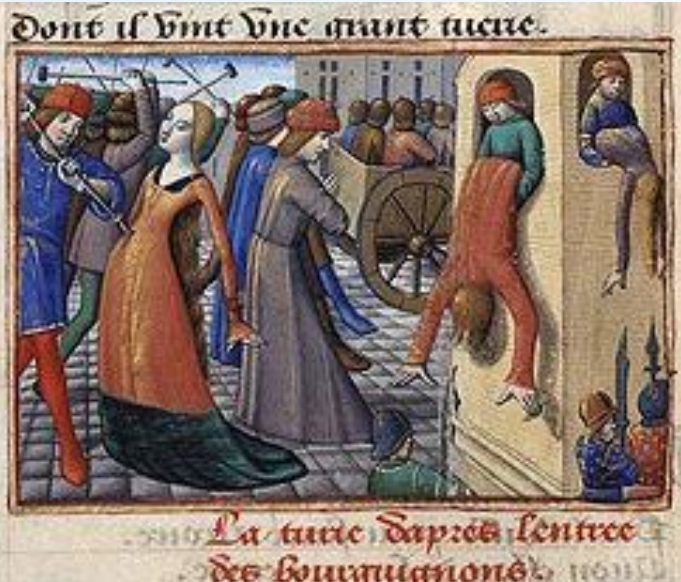 dont il vint vne grant tuerie.
La turie dapres lentree
des bourguignons